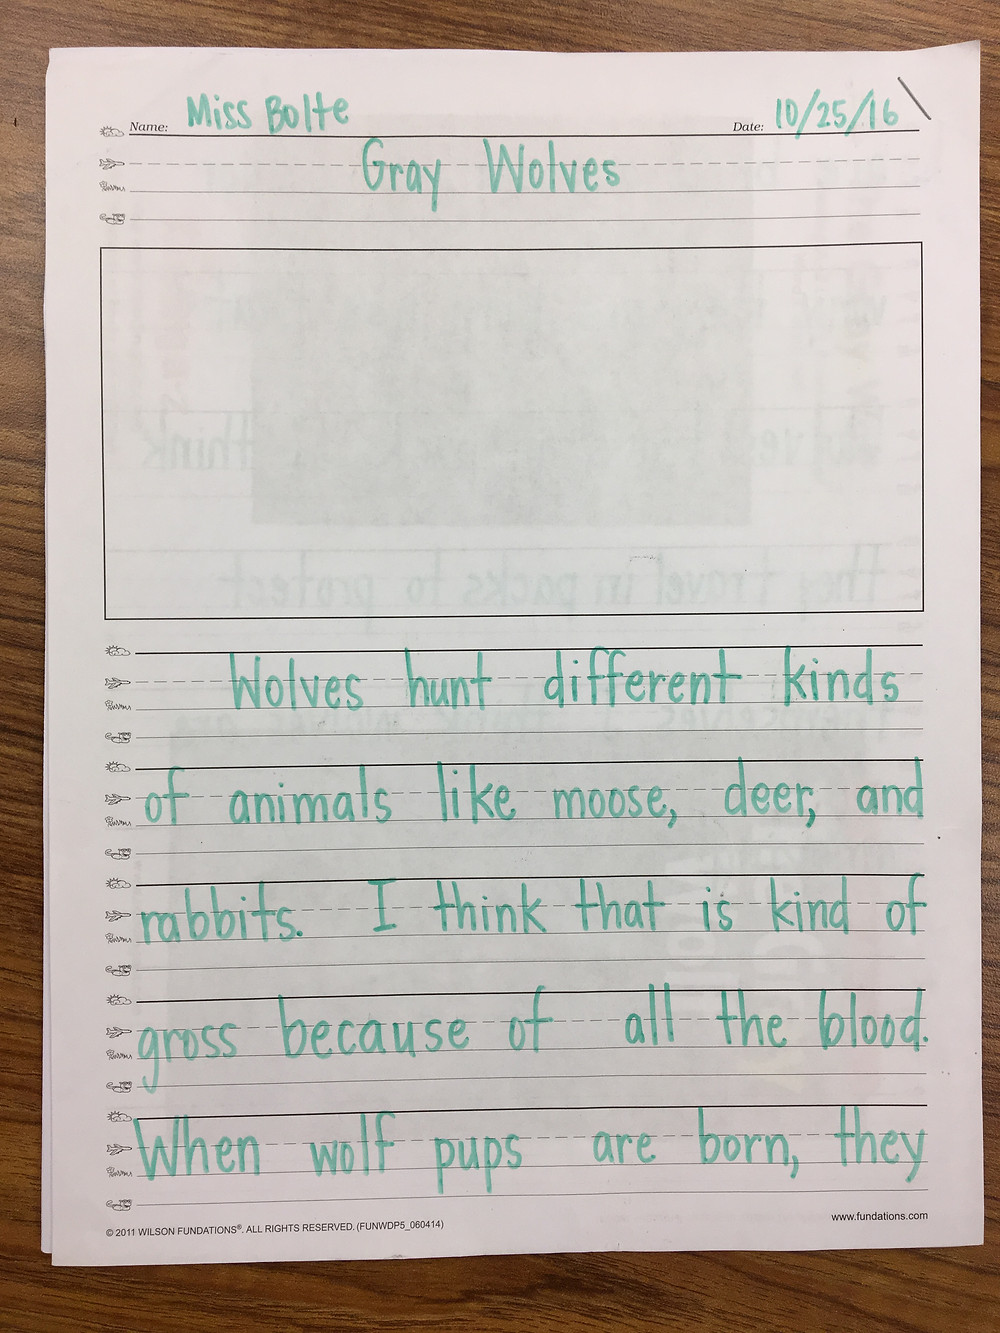 Name: Miss Bolte Date: 10/25/16
Gray Wolves
think
they travel in packs to protect
Wolves hunt different kinds
of animals like moose, deer, and
rabbits. I think that is kind of
gross because of all the blood.
When wolf pups are born, they
© 2011 WILSON FUNDATIONS®. ALL RIGHTS RESERVED. (FUNWDP5_060414) www.fundations.com